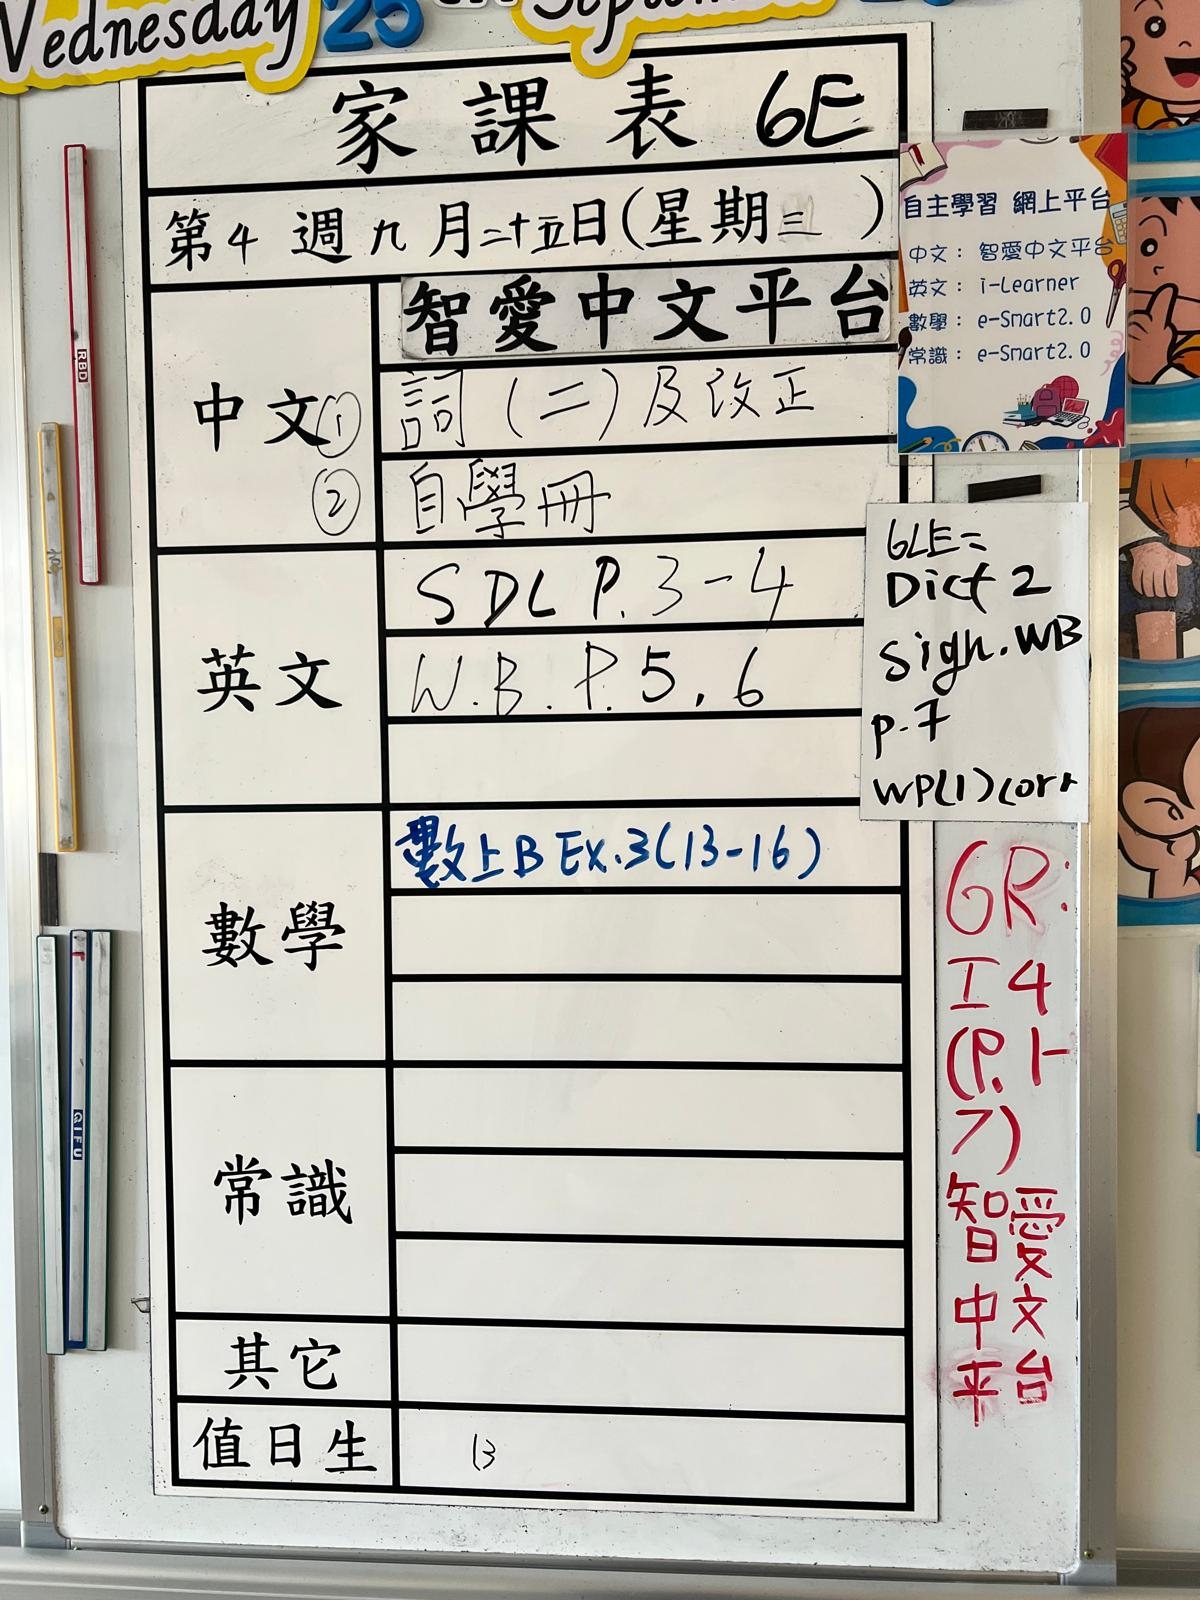 Wednesday 25
September
家課表 6E
第4週九月二十五日(星期三)
中文
智愛中文平台
① 詞(二)及改正
② 自學冊
英文
SDL P.3-4
W.B. P.5,6
數學
數上B Ex.3(13-16)
常識
其它
值日生
13
自主學習 網上平台
中文： 智愛中文平台
英文： i-Learner
數學： e-Smart2.0
常識： e-Smart2.0
6LE=
Dict 2
sign. WB
p.7
WP(1)corr
6R:
工4
(P.1-
7)
智愛
中文
平台
RBD
QIFU